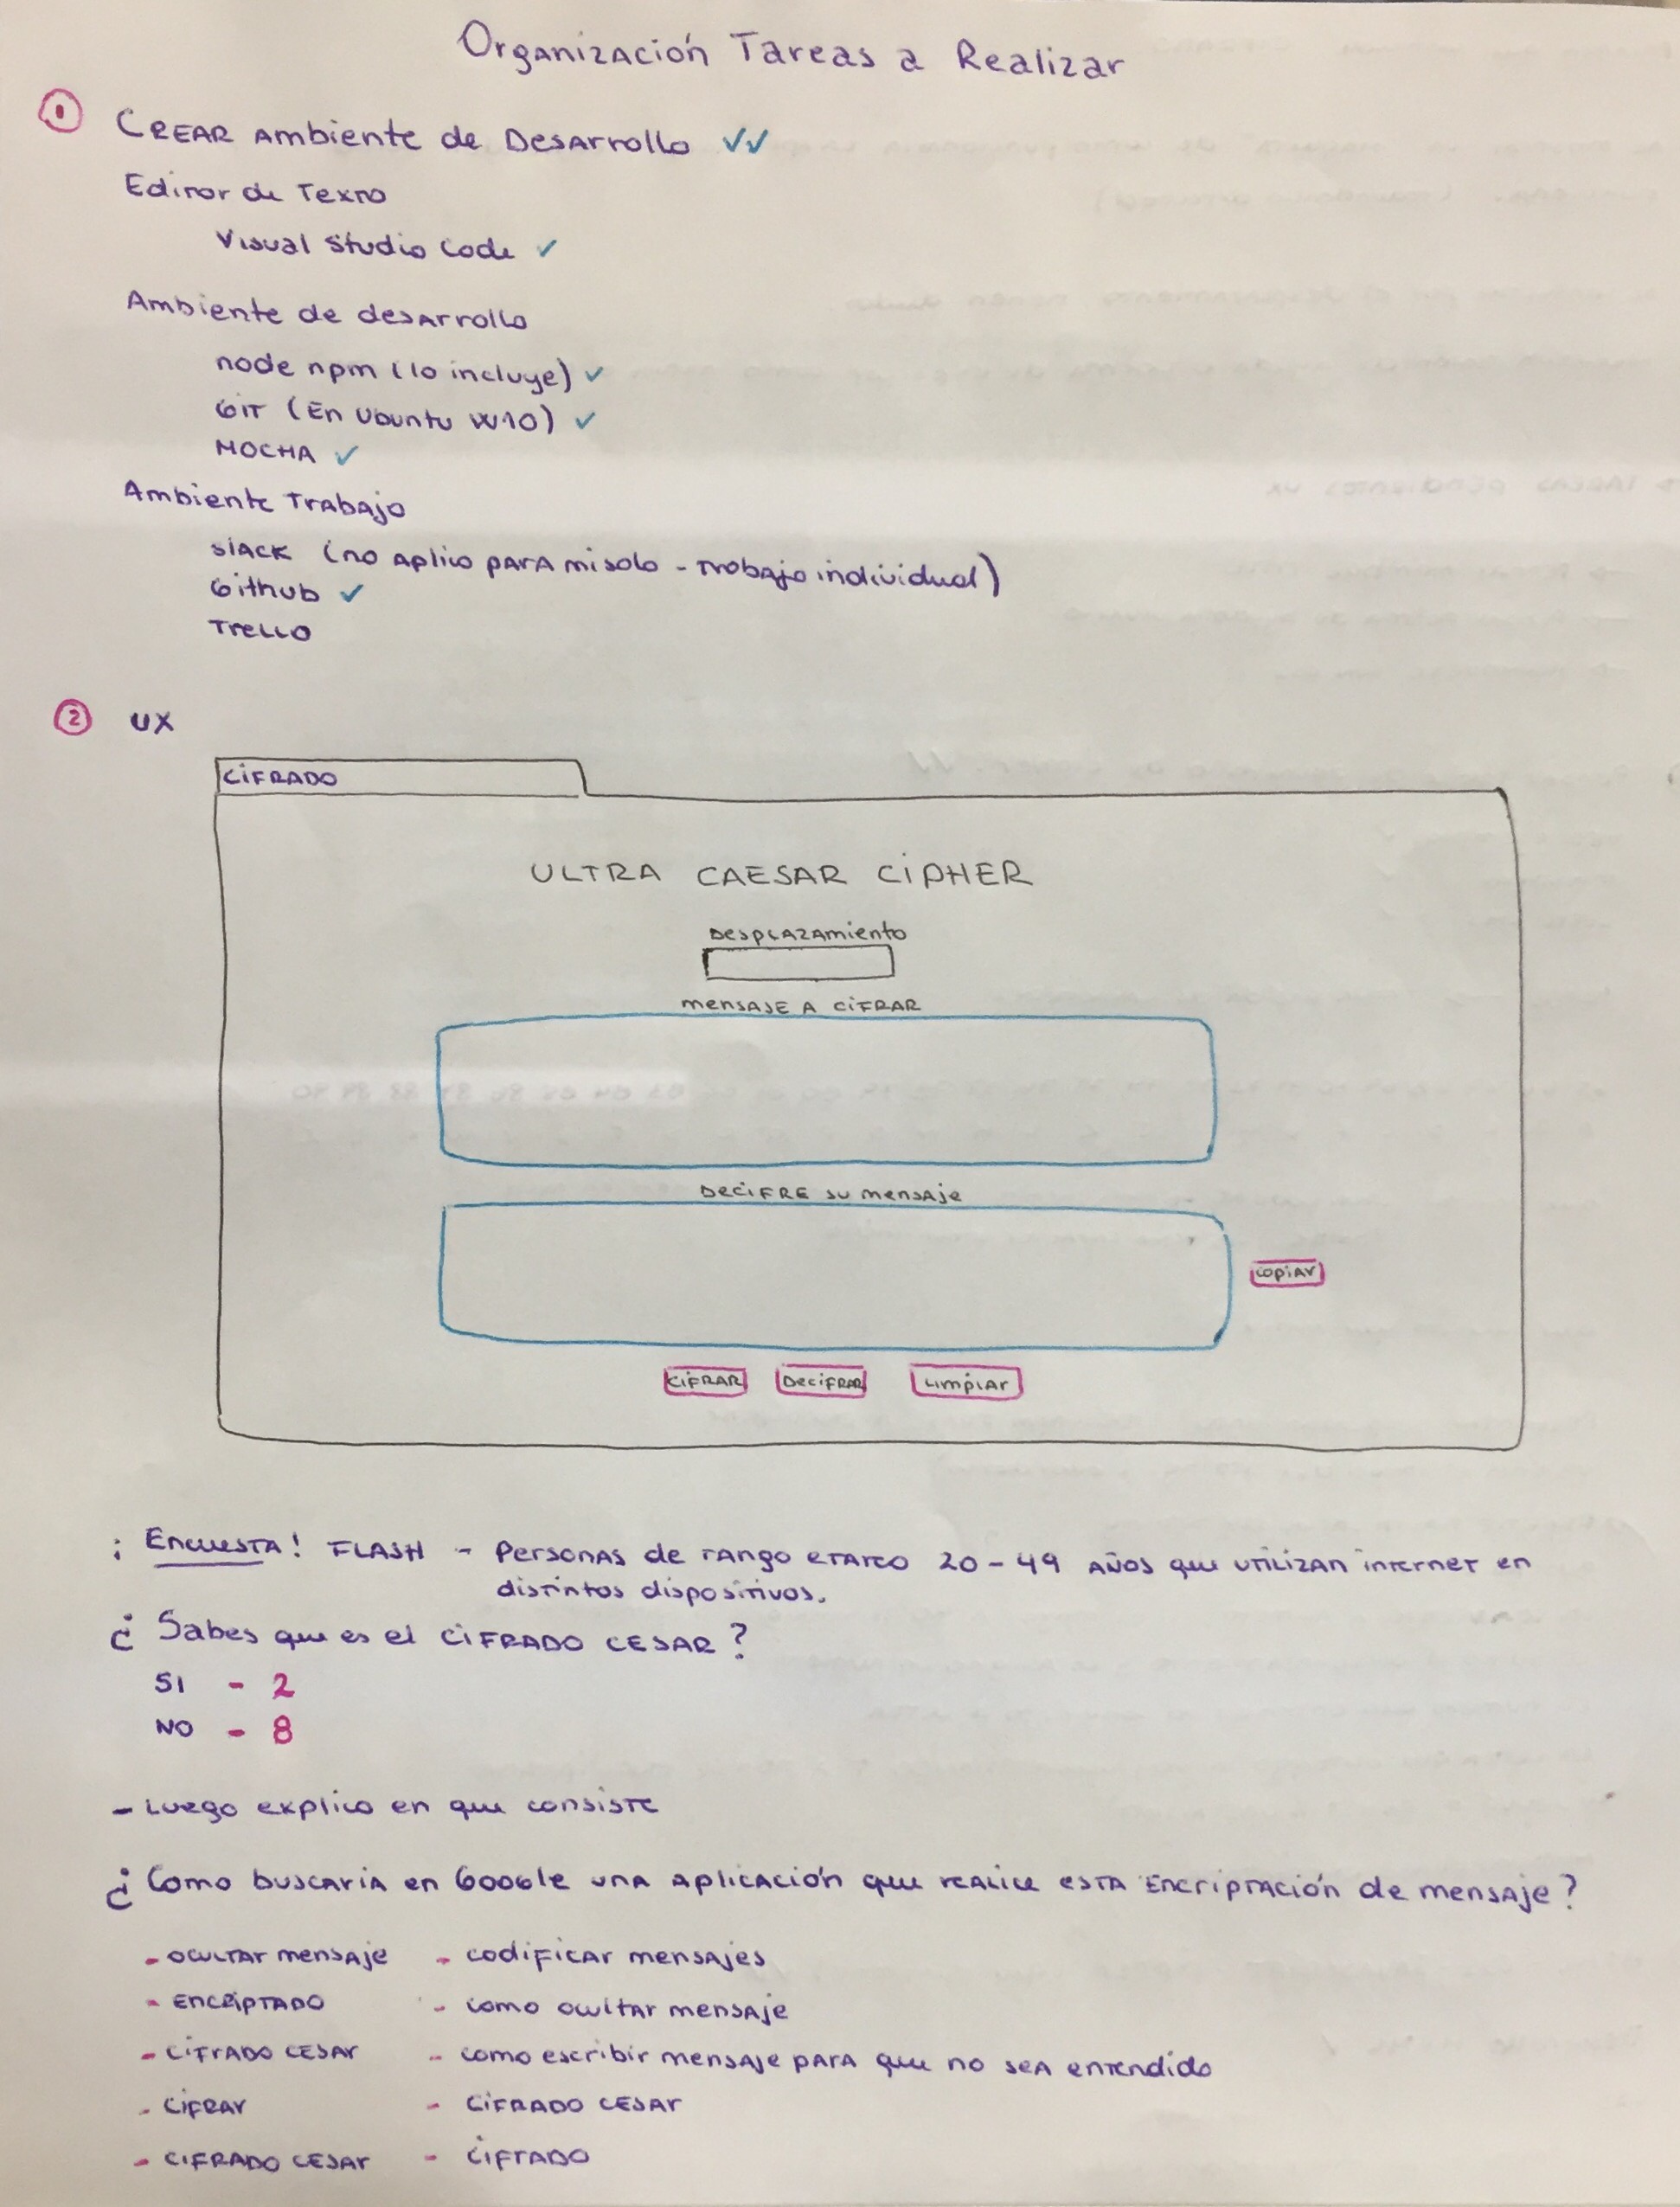 Organización Tareas a Realizar
① CREAR Ambiente de Desarrollo ✓✓
Editor de Texto
Visual Studio Code ✓
Ambiente de desarrollo
node npm (lo incluye) ✓
GIT (En Ubuntu W10) ✓
MOCHA ✓
Ambiente Trabajo
slack (no aplico para mi solo - trabajo individual)
Github ✓
Trello
② UX
CIFRADO
ULTRA CAESAR CIPHER
Desplazamiento
mensaje a cifrar
Decifre su mensaje
copiar
CIFRAR Decifrar Limpiar
¡Encuesta! FLASH - Personas de rango etareo 20-49 años que utilizan internet en
distintos dispositivos.
¿Sabes que es el CIFRADO CESAR?
SI - 2
NO - 8
- Luego explico en que consiste
¿Como buscaria en Google una aplicación que realice esta encriptación de mensaje?
- ocultar mensaje - codificar mensajes
- ENCRIPTADO - como ocultar mensaje
- CIFRADO CESAR - como escribir mensaje para que no sea entendido
- CIFRAR - CIFRADO CESAR
- CIFRADO CESAR - CIFRADO